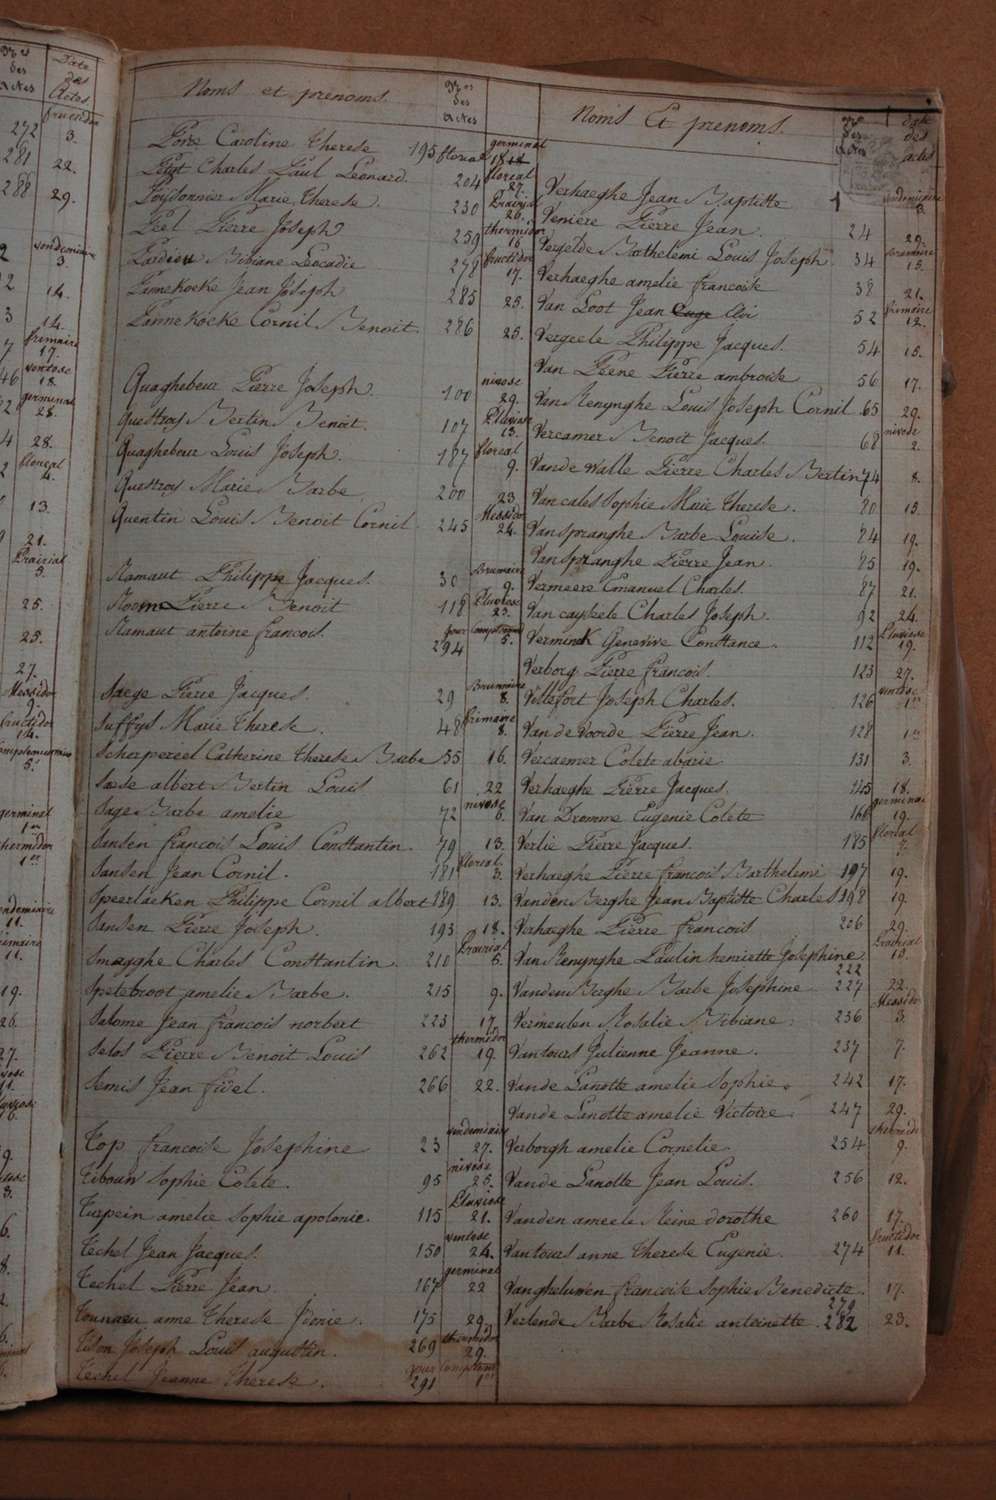 Nos des actes | Date des Actes
fructidor
272 | 3.
281 | 22.
288 | 29.
vendemiaire
3.
14.
14.
frimaire
17.
ventose
18.
germinal
28.
28.
floreal
4.
13.
21.
Prairial
3.
25.
25.
27.
Messidor
9.
fructidor
14.
complementaire
5.
germinal
1er
thermidor
1er
11.
11.
19.
26.
27.
Noms et prenoms. | Nos des actes
Caroline Therese | 195 | floreal | germinal 18
Petit Charles Paul Leonard. | 204 | floreal 27.
Marie Therese. | 230 | Prairial 26.
Pel Pierre Joseph | 259 | thermidor 16
Pardieu Bibiane Leocadie | 278 | fructidor 17.
Pannekocke Jean Joseph | 285 | 25.
Pannekocke Cornil Benoit. | 286 | 25.
Quaghebeur Pierre Joseph | 100 | nivose 29.
Questroy Bertin Benoit. | 107 | Pluviose 13.
Quaghebeur Louis Joseph. | 187 | floreal 9.
Questroy Marie Barbe | 200 | 23
Quentin Louis Benoit Cornil | 245 | Messidor 24.
Ramaut Philippe Jacques. | 30 | Brumaire 9.
Pierre Benoit | 118 | Pluviose 23.
Ramaut antoine francois. | 294 | jour complem 5.
Saege Pierre Jacques. | 29 | Brumaire 8.
Suffys Marie therese. | 48 | frimaire 8.
Scherpereel Catherine therese Barbe | 55 | 16.
Saese albert Bertin Louis | 61 | 22
Sage Barbe amelie | 72 | nivose 6.
Sansen francois Louis Constantin. | 79 | 13.
Sansen Jean Cornil. | 181 | floreal 3.
Speerlaeken Philippe Cornil albert | 189 | 13.
Sansen Pierre Joseph. | 193 | 18.
Smagghe Charles Constantin. | 210 | Prairial 5.
Spetebroot amelie Barbe. | 215 | 9.
Salome Jean francois norbert | 223 | 17.
Selos Pierre Benoit Louis | 262 | thermidor 19.
Semis Jean fidel. | 266 | 22.
Top francoise Josephine | 23 | vendemiaire 27.
Tiboun Sophie Colete. | 95 | nivose 25.
Turpein amelie Sophie apolonie. | 115 | Pluviose 21.
Techel Jean Jacques. | 150 | ventose 24.
Techel Pierre Jean | 167 | germinal 22
Tonneau anne Therese | 175 | 29.
Tison Joseph Louis augustin. | 269 | thermidor 29.
Techel Jeanne therese. | 291 | jour complem 1er
Noms Et prenoms. | Nos des actes | date des actes
Verhaeghe Jean Baptiste | 1 | vendemiaire 3.
Veniere Pierre Jean. | 24 | 29.
Vergelde Bathelemi Louis Joseph. | 34 | brumaire 15.
Verhaeghe amelie francoise | 38 | 21.
Van Loot Jean Eloi | 52 | frimaire 12.
Vergeele Philippe Jacques. | 54 | 15.
Van Peene Pierre ambroise | 56 | 17.
Van Renynghe Louis Joseph Cornil | 65 | 29.
Vercamer Benoit Jacques. | 68 | nivose 2.
Vande walle Pierre Charles Bertin | 74 | 8.
Vancales Sophie Marie Therese. | 80 | 15.
Vanspranghe Barbe Louise. | 84 | 19.
Vanspranghe Pierre Jean. | 85 | 19.
Vermeere Emanuel Charles. | 87 | 21.
Vancayseele Charles Joseph. | 92 | 24.
Verminck Genevive Constance. | 112 | Pluviose 19.
Verborg Pierre francois. | 123 | 27.
Villefort Joseph Charles. | 126 | ventose 1er
Van de Voorde Pierre Jean. | 128 | 1er
Vercaemer Colete abarie | 131 | 3.
Verhaeghe Pierre Jacques. | 145 | 18.
Van Dromme Eugenie Colete | 166 | germinal 19.
Verlie Pierre Jacques. | 185 | floreal 7.
Verhaeghe Pierre francois Barthelemi | 197 | 19.
Vanden Berghe Jean Baptiste Charles | 198 | 19.
Verhaeghe Pierre francois | 206 | 29.
Van Renynghe Paulin henriette Josephine | 222 | Prairial 10.
Vanden Berghe Barbe Josephine | 227 | 22.
Vermeulen Rosalie Bibiane | 236 | Messidor 3.
Vantours Julienne Jeanne. | 237 | 7.
Vande Lanotte amelie Sophie. | 242 | 17.
Vande Lanotte amelie Victoire. | 247 | 29.
Verborgh amelie Cornelie. | 254 | thermidor 9.
Vande Lanotte Jean Louis. | 256 | 12.
Vanden ameele Reine dorothe | 260 | 17.
Vantours anne therese Eugenie. | 274 | fructidor 11.
Vangheluwen francoise Sophie Benedicte | 279 | 17.
Verlende Barbe Rosalie antoinette. | 282 | 23.